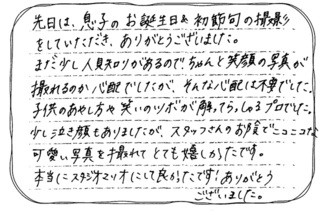 先日は、息子のお誕生日&初節句の撮影
をしていただき、ありがとうございました。
まだ少し人見知りがあるので、ちゃんと笑顔の写真が
撮れるのか心配でしたが、そんな心配は不要でした。
子供のあやし方や笑いのツボが解ってらっしゃるプロでした。
少し泣き顔もありましたが、スタッフさんのお陰でニコニコな
可愛い写真を撮れて とても嬉しかったです。
本当にスタジオマリオにして良かったです!ありがとう
ございました。